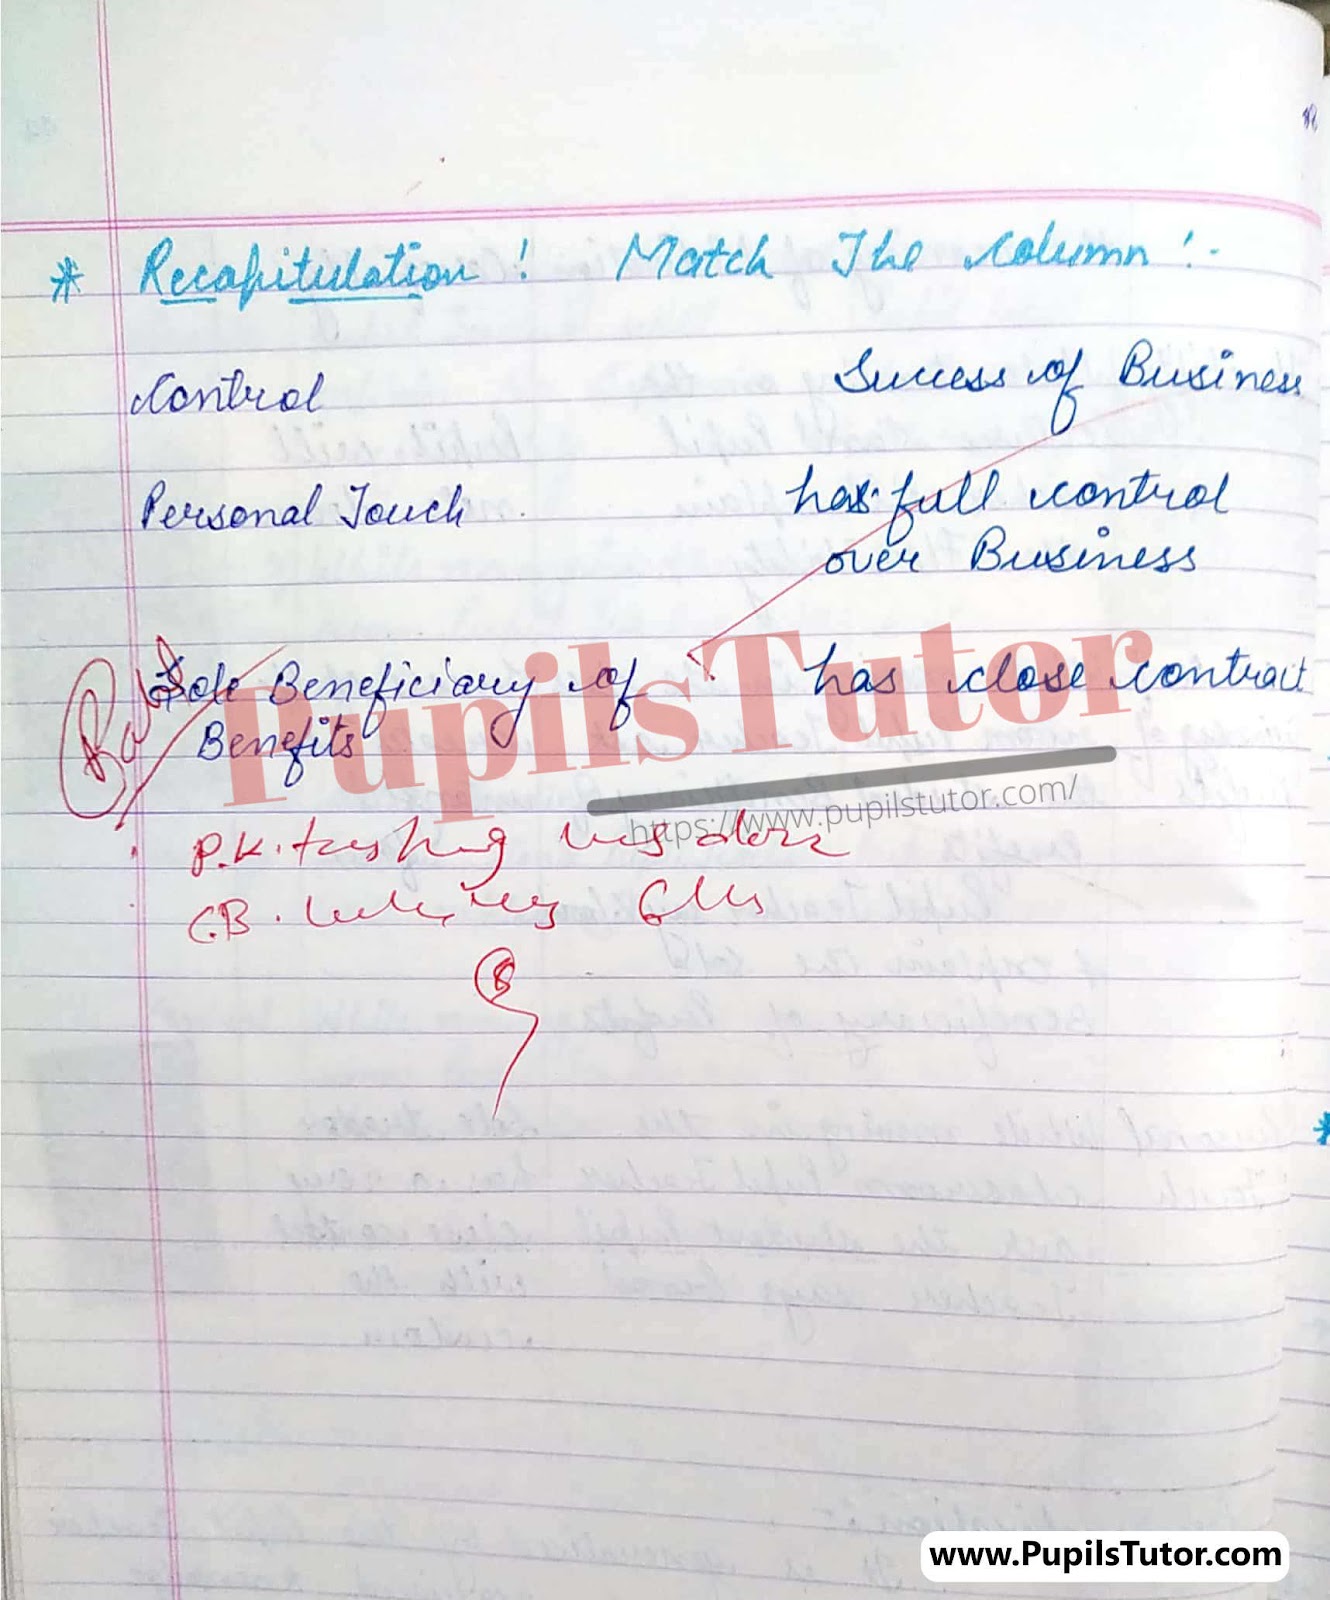 * Recapitulation! Match The Column!-
Control Success of Business
Personal Touch has full control
over Business
Sole Beneficiary of has close contract
Benefits
PupilsTutor
https://www.pupilstutor.com/
P.K.
C.B.
www.PupilsTutor.com